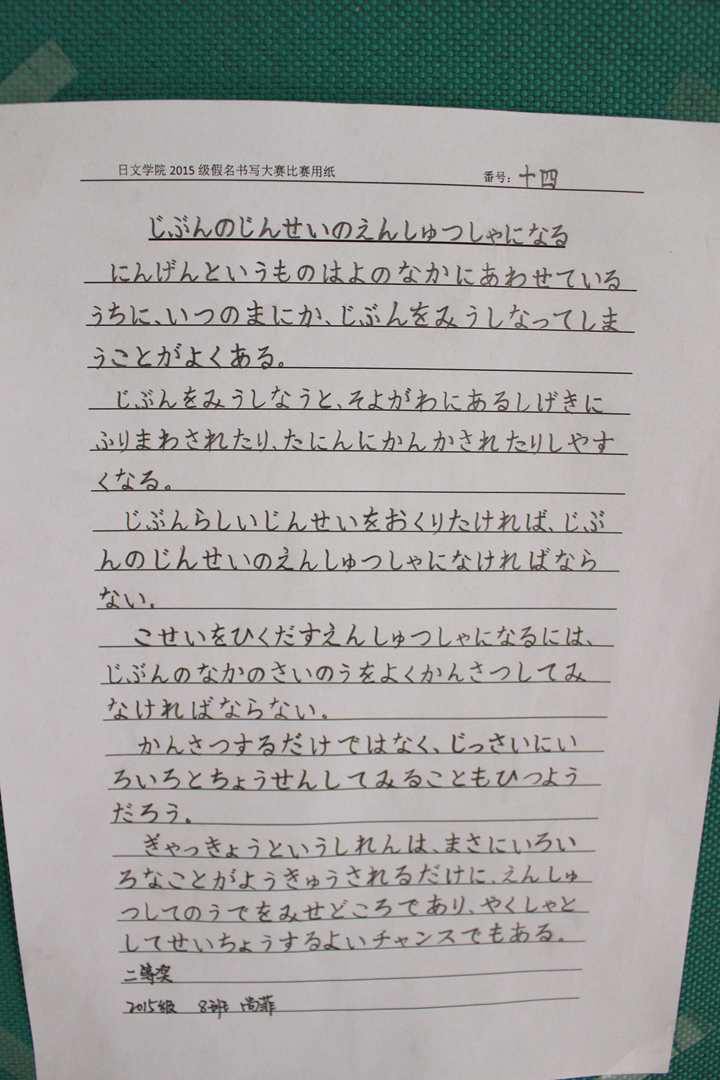 日文学院 2015 级假名书写大赛比赛用纸 番号：十四
じぶんのじんせいのえんしゅつしゃになる
にんげんというものはよのなかにあわせている
うちに、いつのまにか、じぶんをみうしなってしま
うことがよくある。
じぶんをみうしなうと、そよがわにあるしげきに
ふりまわされたり、たにんにかんかされたりしやす
くなる。
じぶんらしいじんせいをおくりたければ、じぶ
んのじんせいのえんしゅつしゃになければなら
ない。
こせいをひくだすえんしゅつしゃになるには、
じぶんのなかのさいのうをよくかんさつしてみ
なければならない。
かんさつするだけではなく、じっさいにい
ろいろとちょうせんしてみることもひつよう
だろう。
ぎゃっきょうというしれんは、まさにいろい
ろなことがようきゅうされるだけに、えんしゅ
つしてのうでをみせどころであり、やくしゃと
してせいちょうするよいチャンスでもある。
二等奖
2015级 8班 尚菲